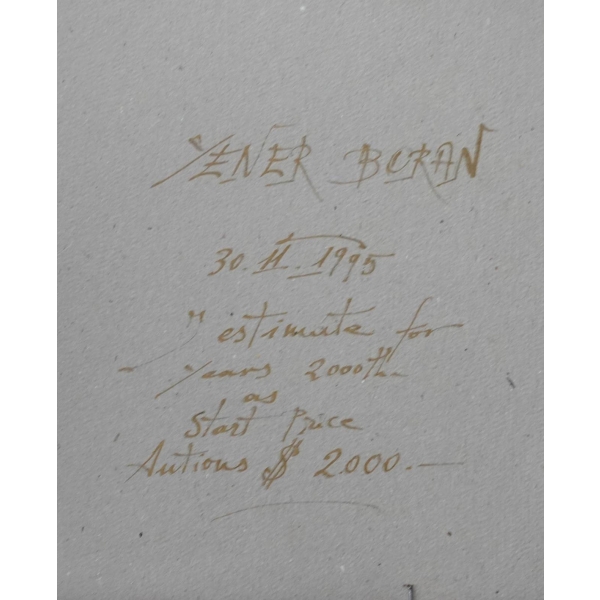 YENER BORAN
30.11.1995
I estimate for
- years 2000th-
as
Start Price
Autions $ 2.000.-